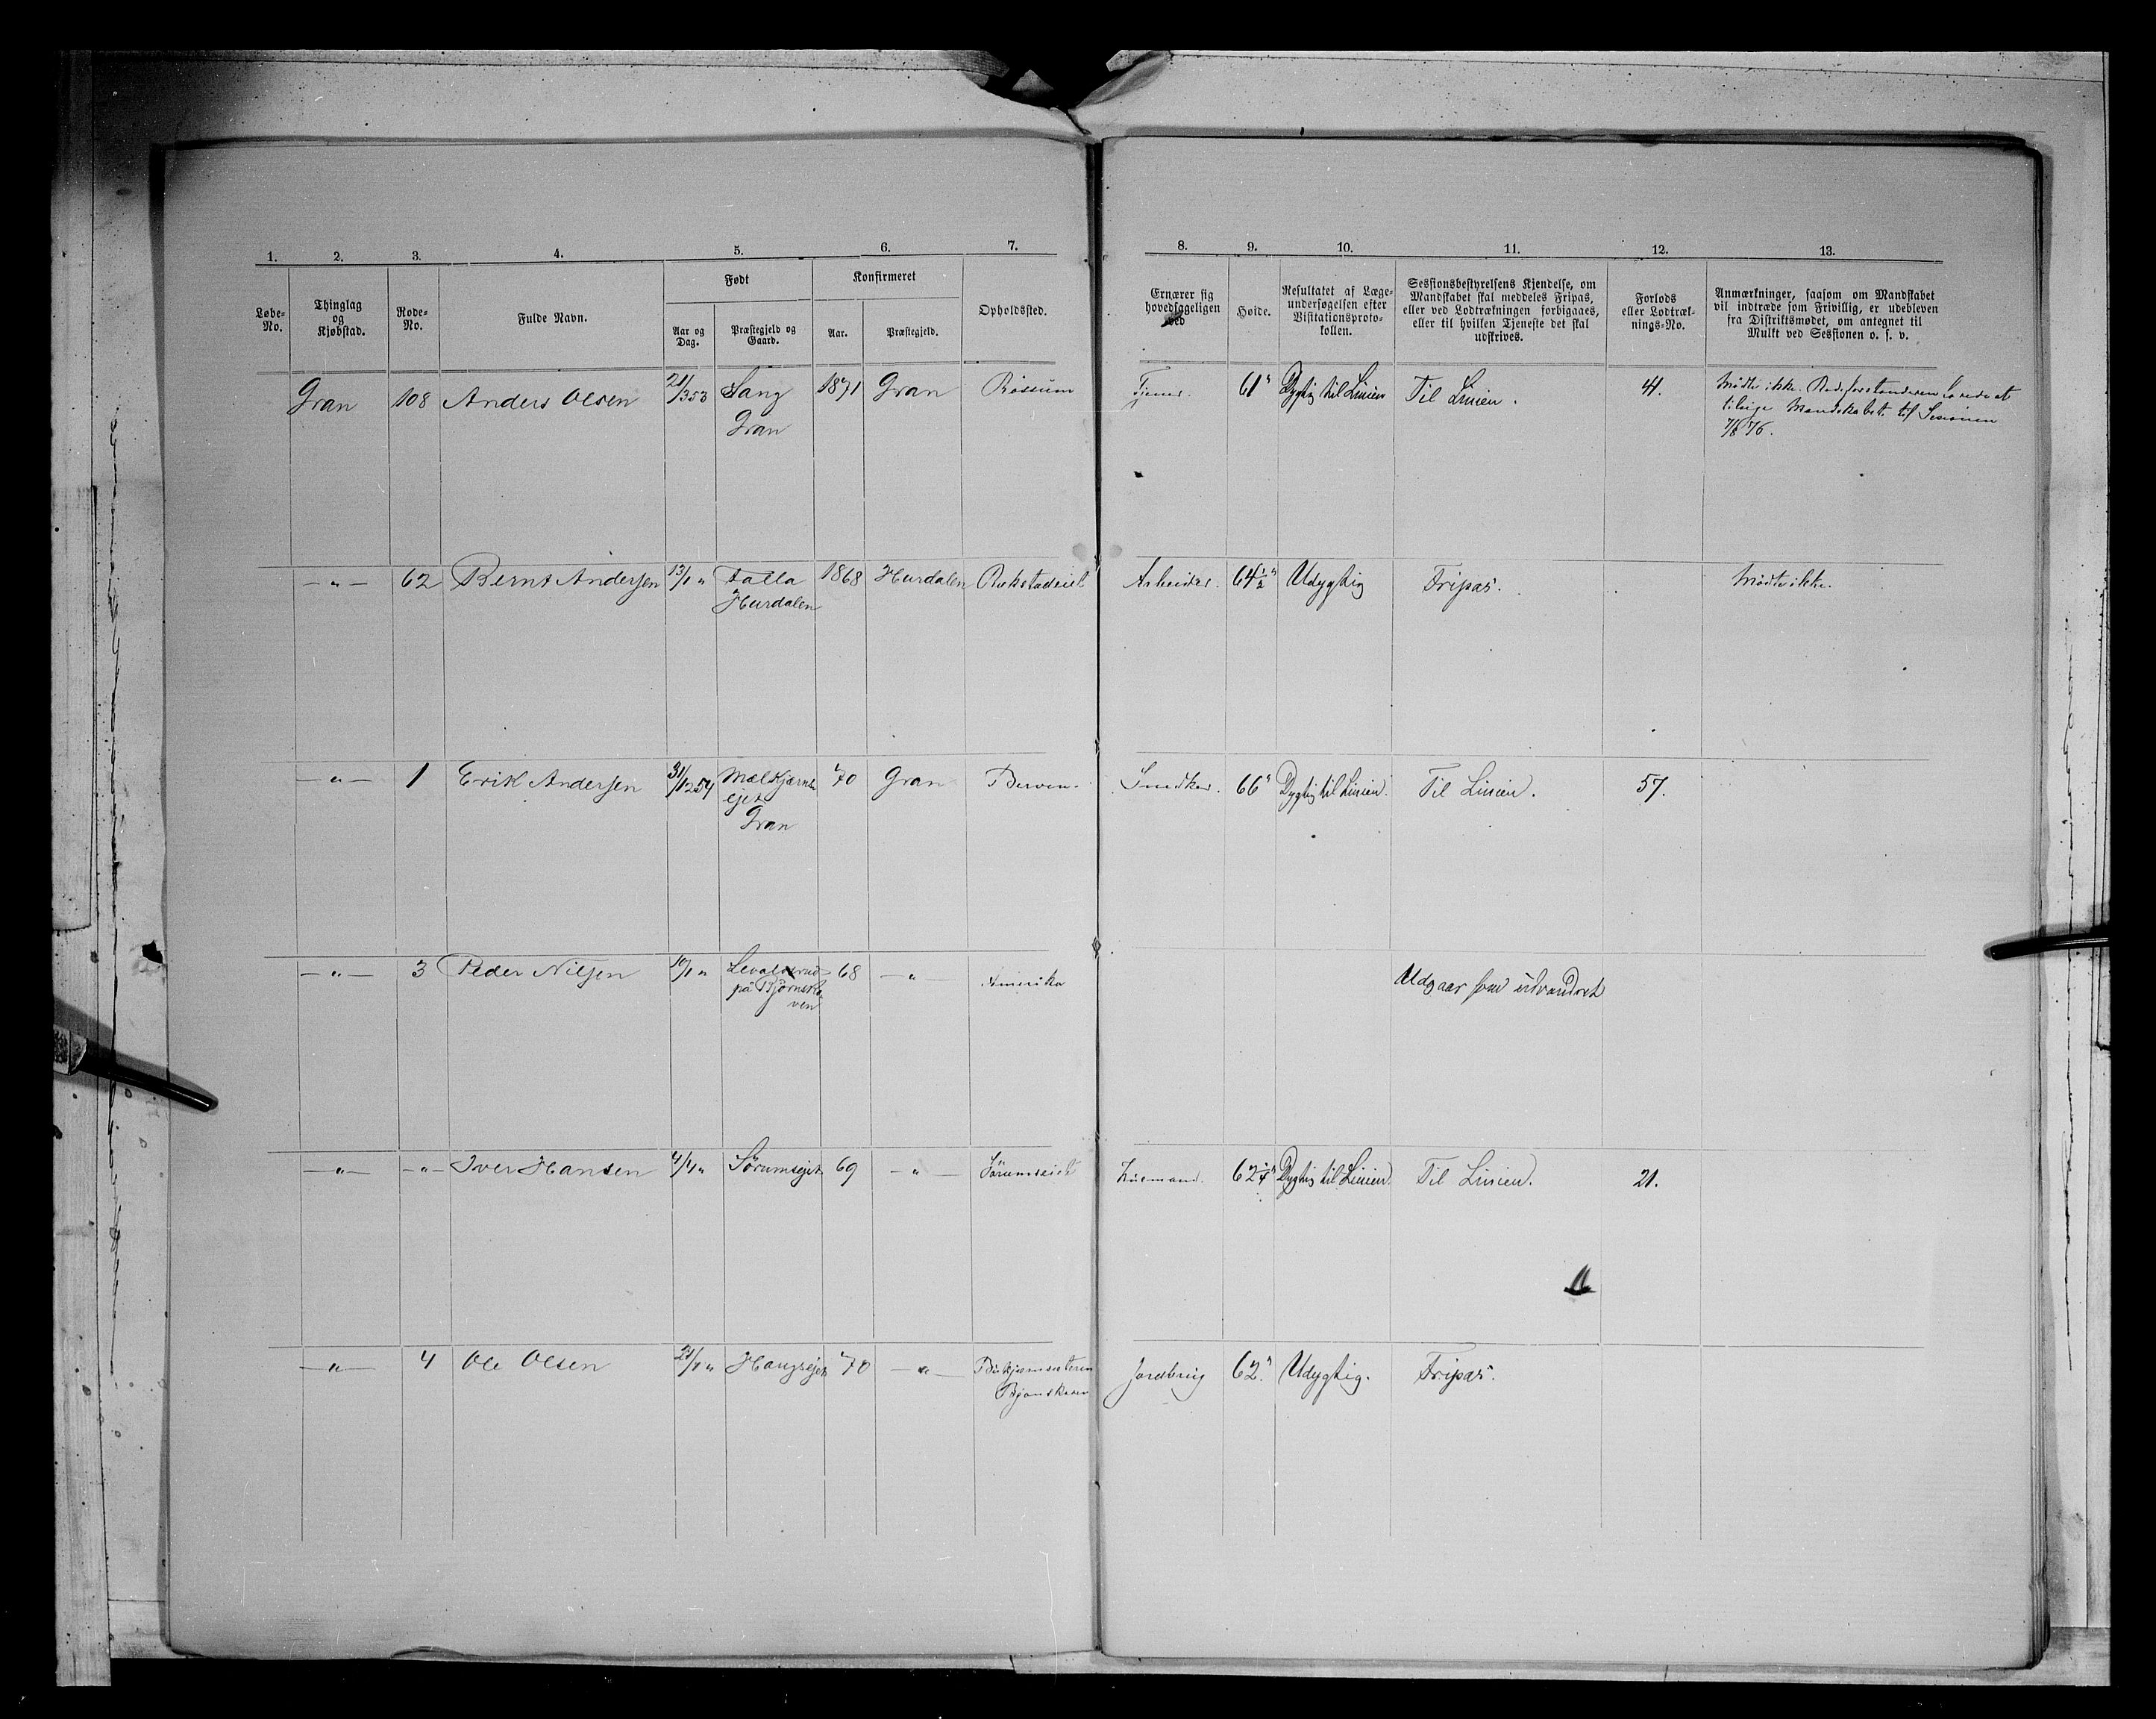 1. 2. 3. 4. 5. 6. 7. 8. 9. 10. 11. 12. 13.
Løbe-No.
Thinglag og Kjøbstad.
Rode-No.
Fulde Navn.
Født
Aar og Dag.
Præstegjeld og Gaard.
Konfirmeret
Aar.
Præstegjeld.
Opholdssted.
Ernærer sig hovedsageligen ved
Høide.
Resultatet af Læge-undersøgelsen efter Visitationsproto-kollen.
Sessionsbestyrelsens Kjendelse, om Mandskabet skal meddeles Fripas, eller ved Lodtrækningen forbigaaes, eller til hvilken Tjeneste det skal udskrives.
Forlods eller Lodtræk-nings-No.
Anmærkninger, saasom om Mandskabet vil indtræde som Frivillig, er udebleven fra Distriktsmødet, om antegnet til Mulkt ved Sessionen o. s. v.
Gran 108 Anders Olsen 21/353 Sang 1871 Gran Røssum Tjener. 61" Dygtig til Linien Til Linien. 41. Mødte ikke. Rodeforstanderen lovede at
Gran tilsige Mandskabet til Sessionen
7/8 76.
—"— 62 Bernt Andersen 13/1 " Falla 1868 Hurdalen Rukstadeiet Arbeider. 64½" Udygtig Fripas. Mødte ikke.
Hurdalen
—"— 1 Erik Andersen 31/1254 Mælkjærns 70 Gran Berven Snedker. 66" Dygtig til Linien. Til Linien. 57.
ejet
Gran
—"— 3 Peder Nilsen 10/1 " 68 —"— Amerika Udgaar som udvandret
på Bjørnsko
ven
—"— —"— Iver Hansen 4/4 " Sørumsejet 69 —"— Sørumseiet Husmand. 62¼" Dygtig til Linien. Til Linien. 21.
—"— 4 Ole Olsen 21/1 " Haugsejet 70 —"— Jordbrug 62." Udygtig. Fripas.